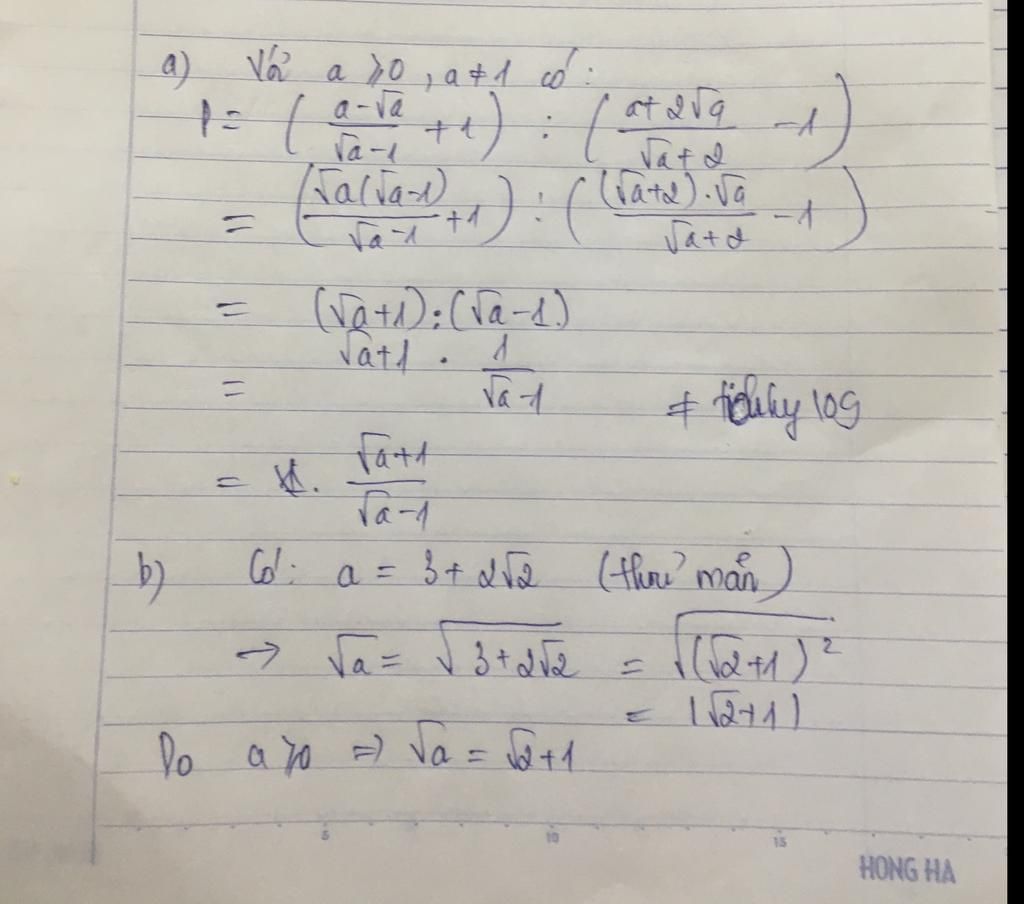 a) Với a ≥ 0, a ≠ 1 có:
P = ( (a - √a)/(√a - 1) + 1 ) : ( (a + 2√a)/(√a + 2) - 1 )
= ( (√a(√a - 1))/(√a - 1) + 1 ) : ( ((√a + 2).√a)/(√a + 2) - 1 )
= (√a + 1) : (√a - 1)
= √a + 1 . 1/(√a - 1)
109
= (√a + 1)/(√a - 1)
b) Có: a = 3 + 2√2 (thoả mãn)
→ √a = √(3 + 2√2) = √((√2 + 1)²)
= |√2 + 1|
Do a ≥ 0 => √a = √2 + 1
5 10 15
HONG HA